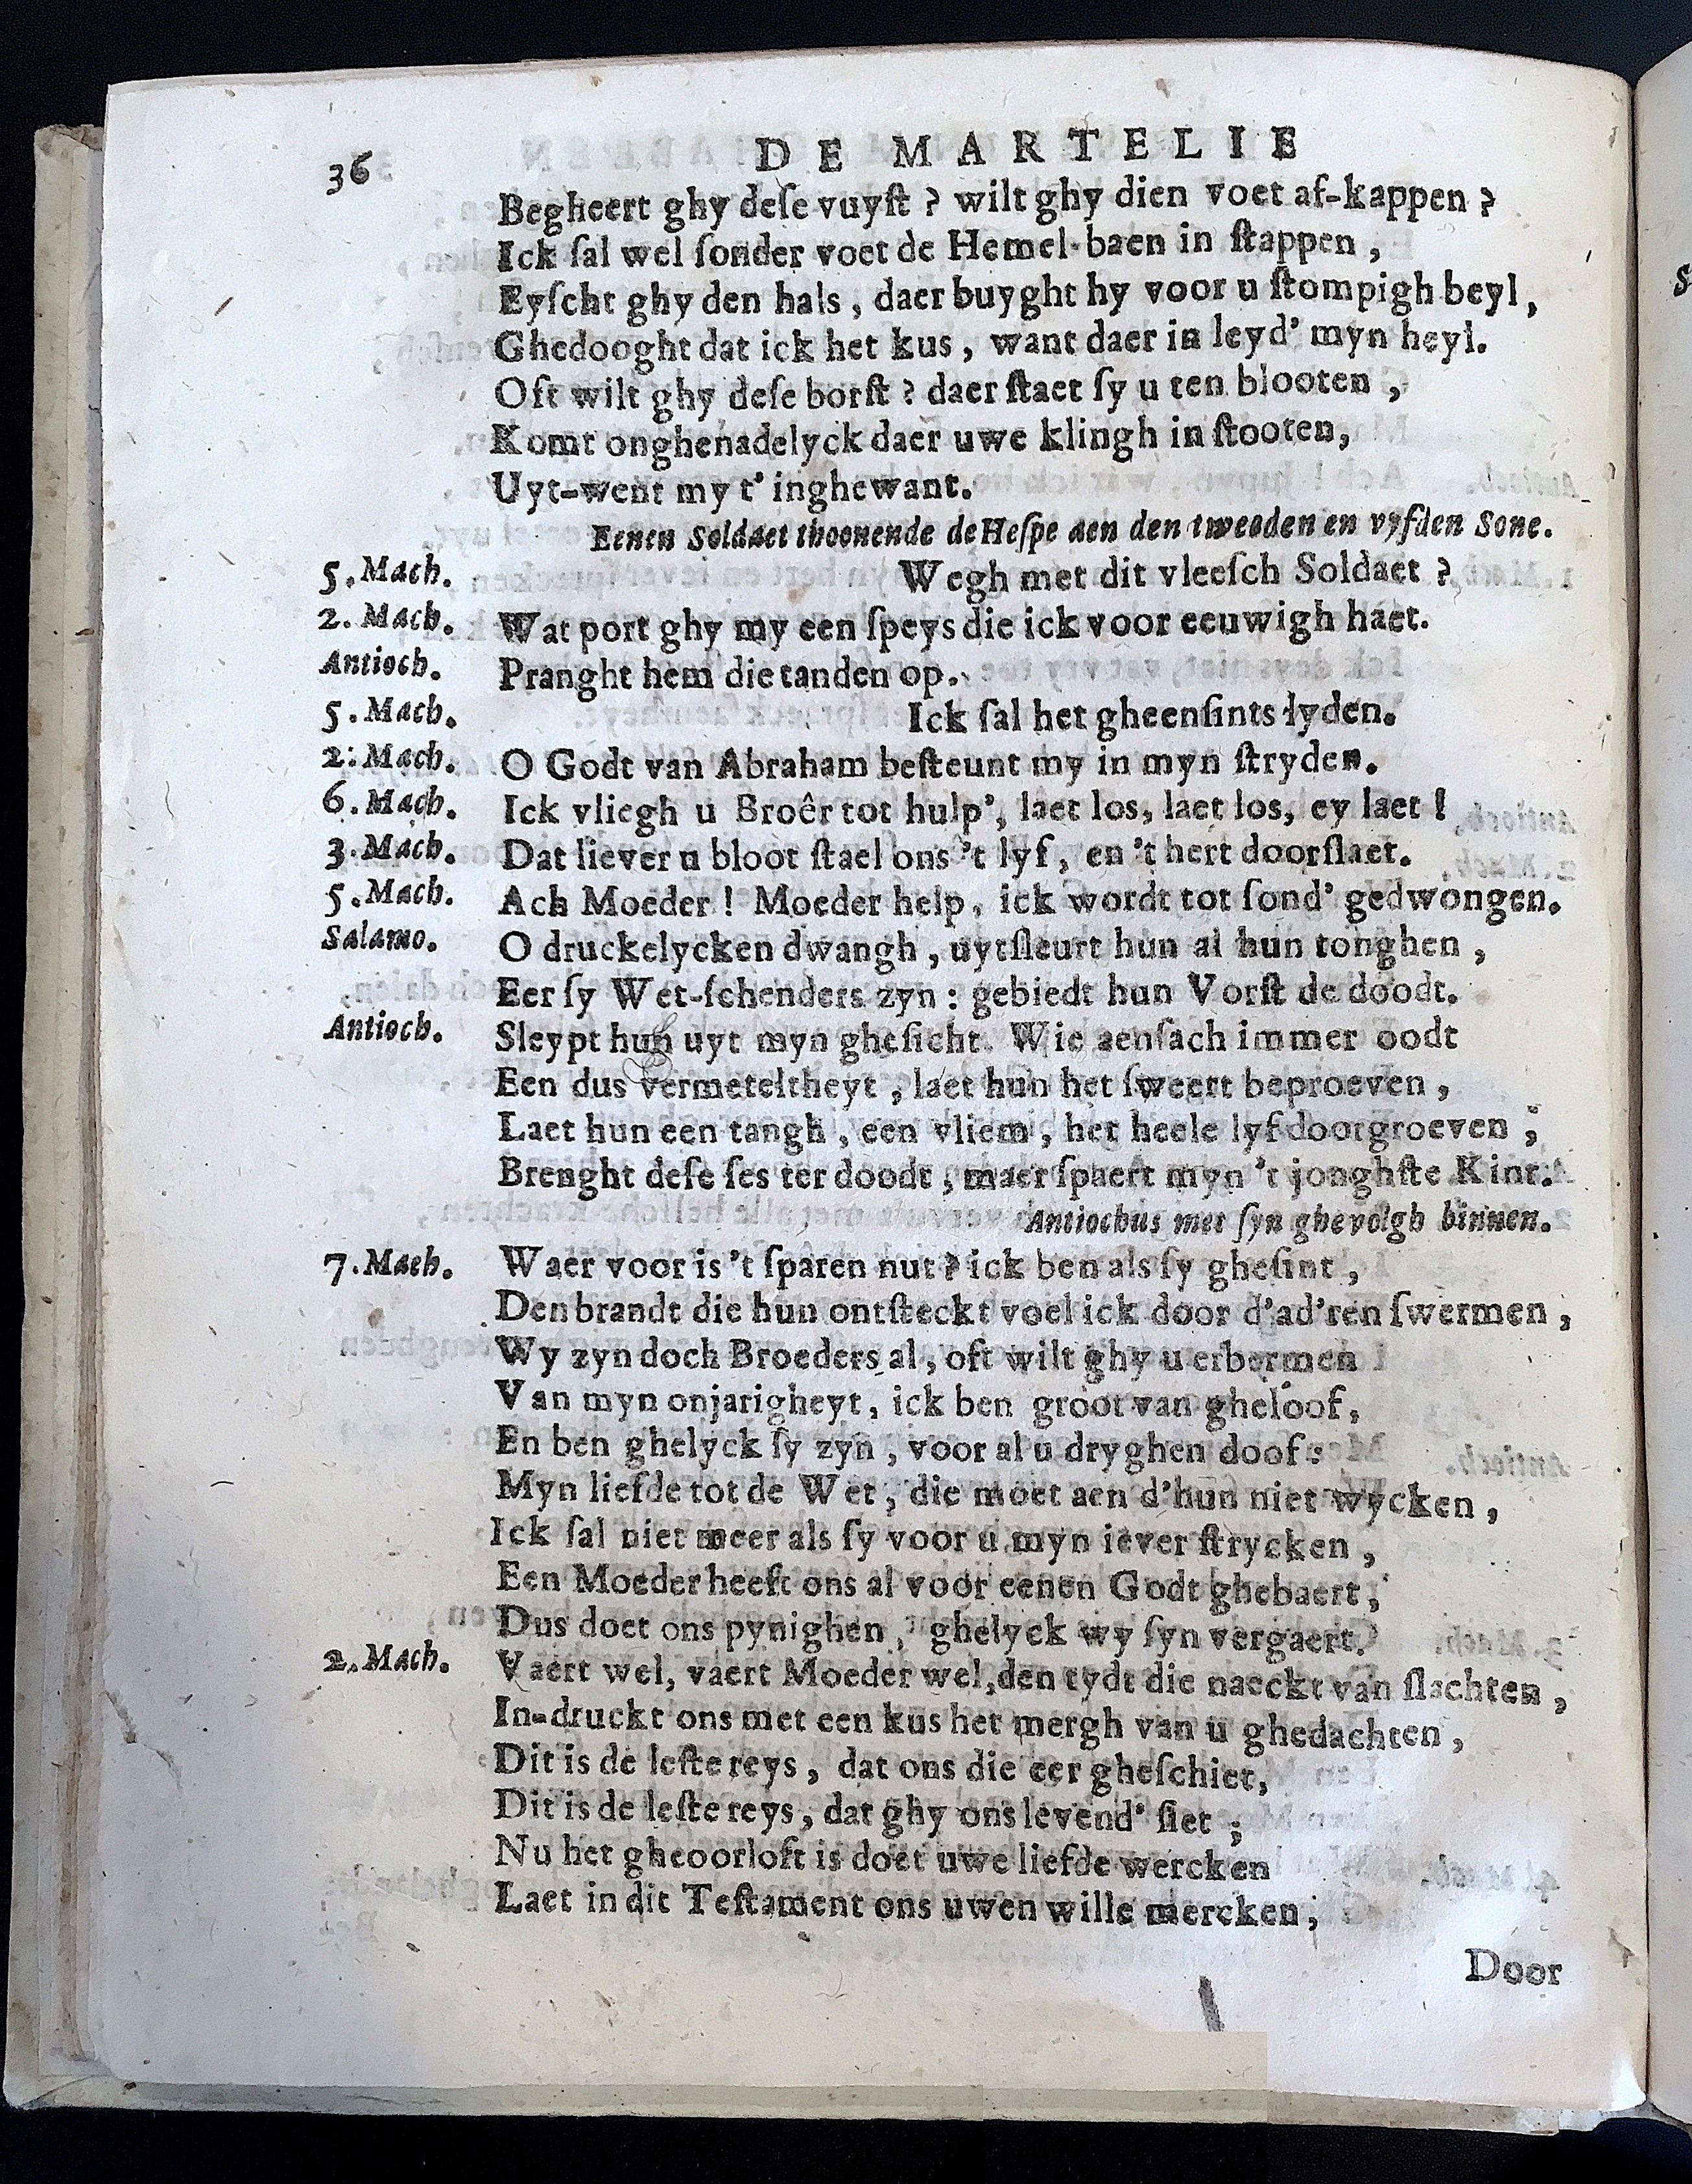 36 DE MARTELIE
Begheert ghy deſe vuyſt ? wilt ghy dien voet af-kappen ?
Ick ſal wel ſonder voet de Hemel-baen in ſtappen ,
Eyſcht ghy den hals , daer buyght hy voor u ſtompigh beyl ,
Ghedooght dat ick het kus , want daer in leyd' myn heyl.
Oft wilt ghy deſe borſt ? daer ſtaet ſy u ten blooten ,
Komt onghenadelyck daer uwe klingh in ſtooten,
Uyt-went my t' inghewant.
Eenen Soldaet thoonende de Heſpe aen den tweeden en vyfden Sone.
5. Mach. Wegh met dit vleeſch Soldaet ?
2. Mach. Wat port ghy my een ſpeys die ick voor eeuwigh haet.
Antioch. Pranght hem die tanden op.
5. Mach. Ick ſal het gheenſints lyden.
2. Mach. O Godt van Abraham beſteunt my in myn ſtryden.
6. Mach. Ick vliegh u Broêr tot hulp', laet los, laet los, ey laet !
3. Mach. Dat liever u bloot ſtael ons 't lyf, en 't hert doorſlaet.
5. Mach. Ach Moeder ! Moeder help, ick wordt tot ſond' gedwongen.
Salamo. O druckelycken dwangh , uytſleurt hun al hun tonghen ,
Eer ſy Wet-ſchenders zyn : gebiedt hun Vorſt de doodt.
Antioch. Sleypt hun uyt myn gheſicht. Wie aenſach immer oodt
Een dus vermeteltheyt , laet hun het ſweert beproeven ,
Laet hun een tangh , een vliem , het heele lyf doorgroeven ;
Brenght deſe ſes ter doodt , maer ſpaert myn 't jonghſte Kint.
Antiochus met ſyn ghevolgh binnen.
7. Mach. Waer voor is 't ſparen nut ? ick ben als ſy gheſint ,
Den brandt die hun ontſteckt voel ick door d'ad'ren ſwermen ,
Wy zyn doch Broeders al , oft wilt ghy u erbermen
Van myn onjarigheyt , ick ben groot van gheloof,
En ben ghelyck ſy zyn , voor al u dryghen doof :
Myn liefde tot de Wet , die moet aen d'hun niet wycken ,
Ick ſal niet meer als ſy voor u myn iever ſtrycken ,
Een Moeder heeft ons al voor eenen Godt ghebaert ,
Dus doet ons pynighen , ghelyck wy ſyn vergaert.
2. Mach. Vaert wel, vaert Moeder wel, den tydt die naeckt van ſlachten ,
In-druckt ons met een kus het mergh van u ghedachten ,
Dit is de leſte reys , dat ons die eer gheſchiet,
Dit is de leſte reys, dat ghy ons levend' ſiet ;
Nu het gheoorloft is doet uwe liefde wercken
Laet in dit Teſtament ons uwen wille mercken ;
Door